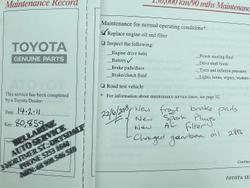 Maintenance Record
TOYOTA
GENUINE PARTS
This service has been completed
by a Toyota Dealer
Date: 14-2-11
Key: 80,859
AUTO SERVICE
150,000 km/90 mths Maintenance
Maintenance for normal operating conditions*:
Replace engine oil and filter
Inspect the following:
Engine drive belts
Battery
Brake pads/discs
Brake/clutch fluid
Power steering fluid
Drive shaft boots
Tyres and inflation pressures
Lights, horns, wipers, washers
Road test vehicle
* For information about maintenance service items, see page
New front brake pads
New Spark Plugs
New Air filter
Changed gearbox oil
TOYOTA